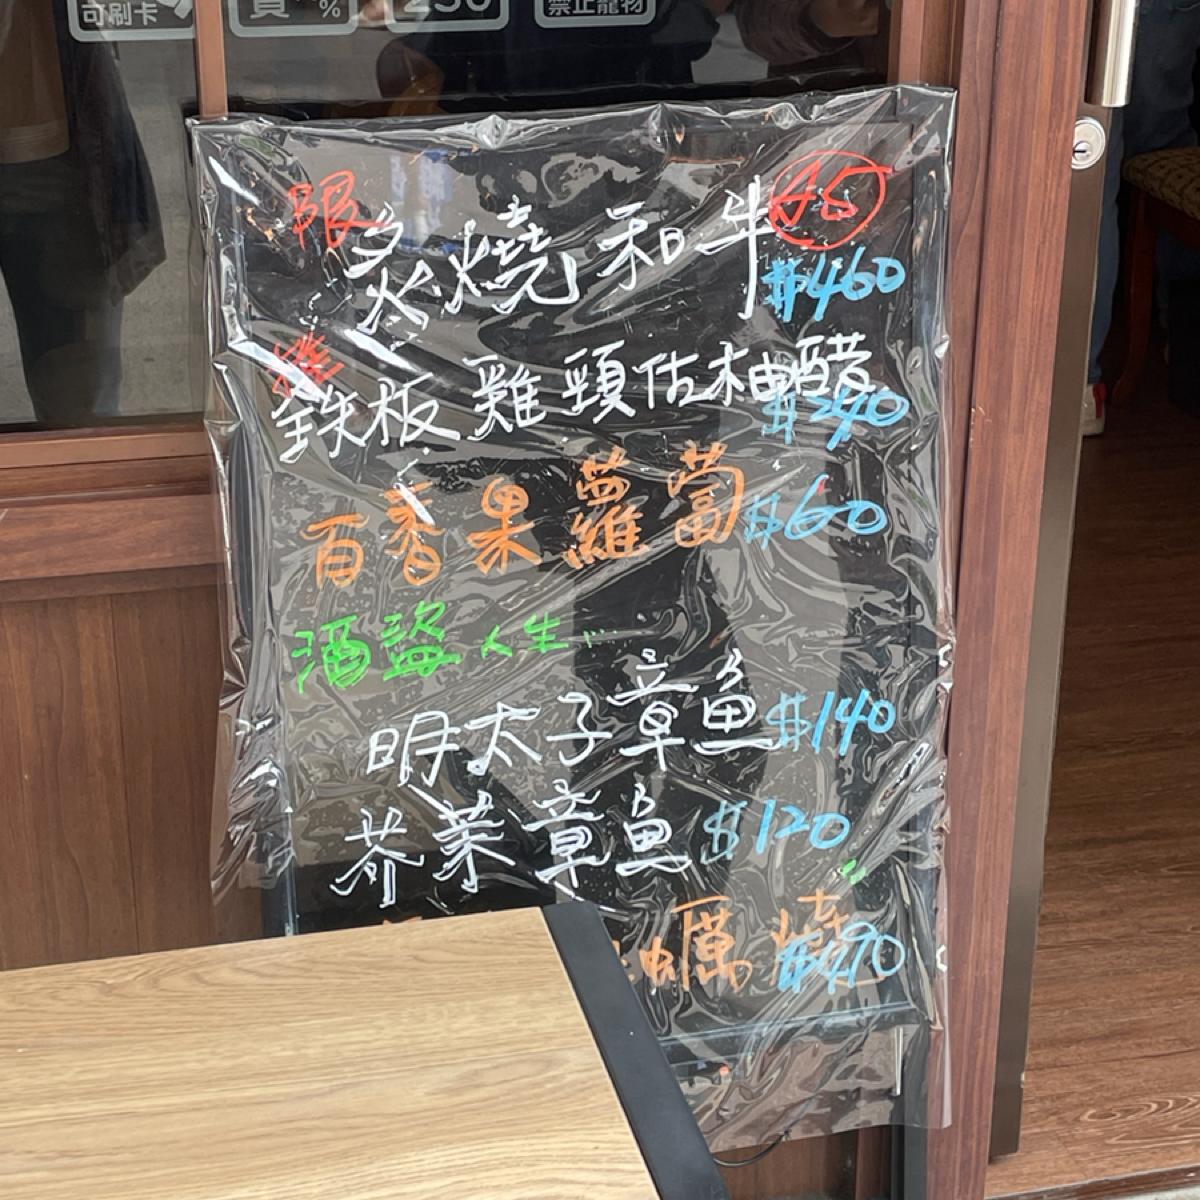 可刷卡
%
250
禁止寵物
限
炙燒和牛 A5
$460
推
鉄板雞頸佐柚醋
$240
百香果蘿蔔 $60
酒盜人生...
明太子章魚 $140
芥茉章魚 $120
蠣燒 $490